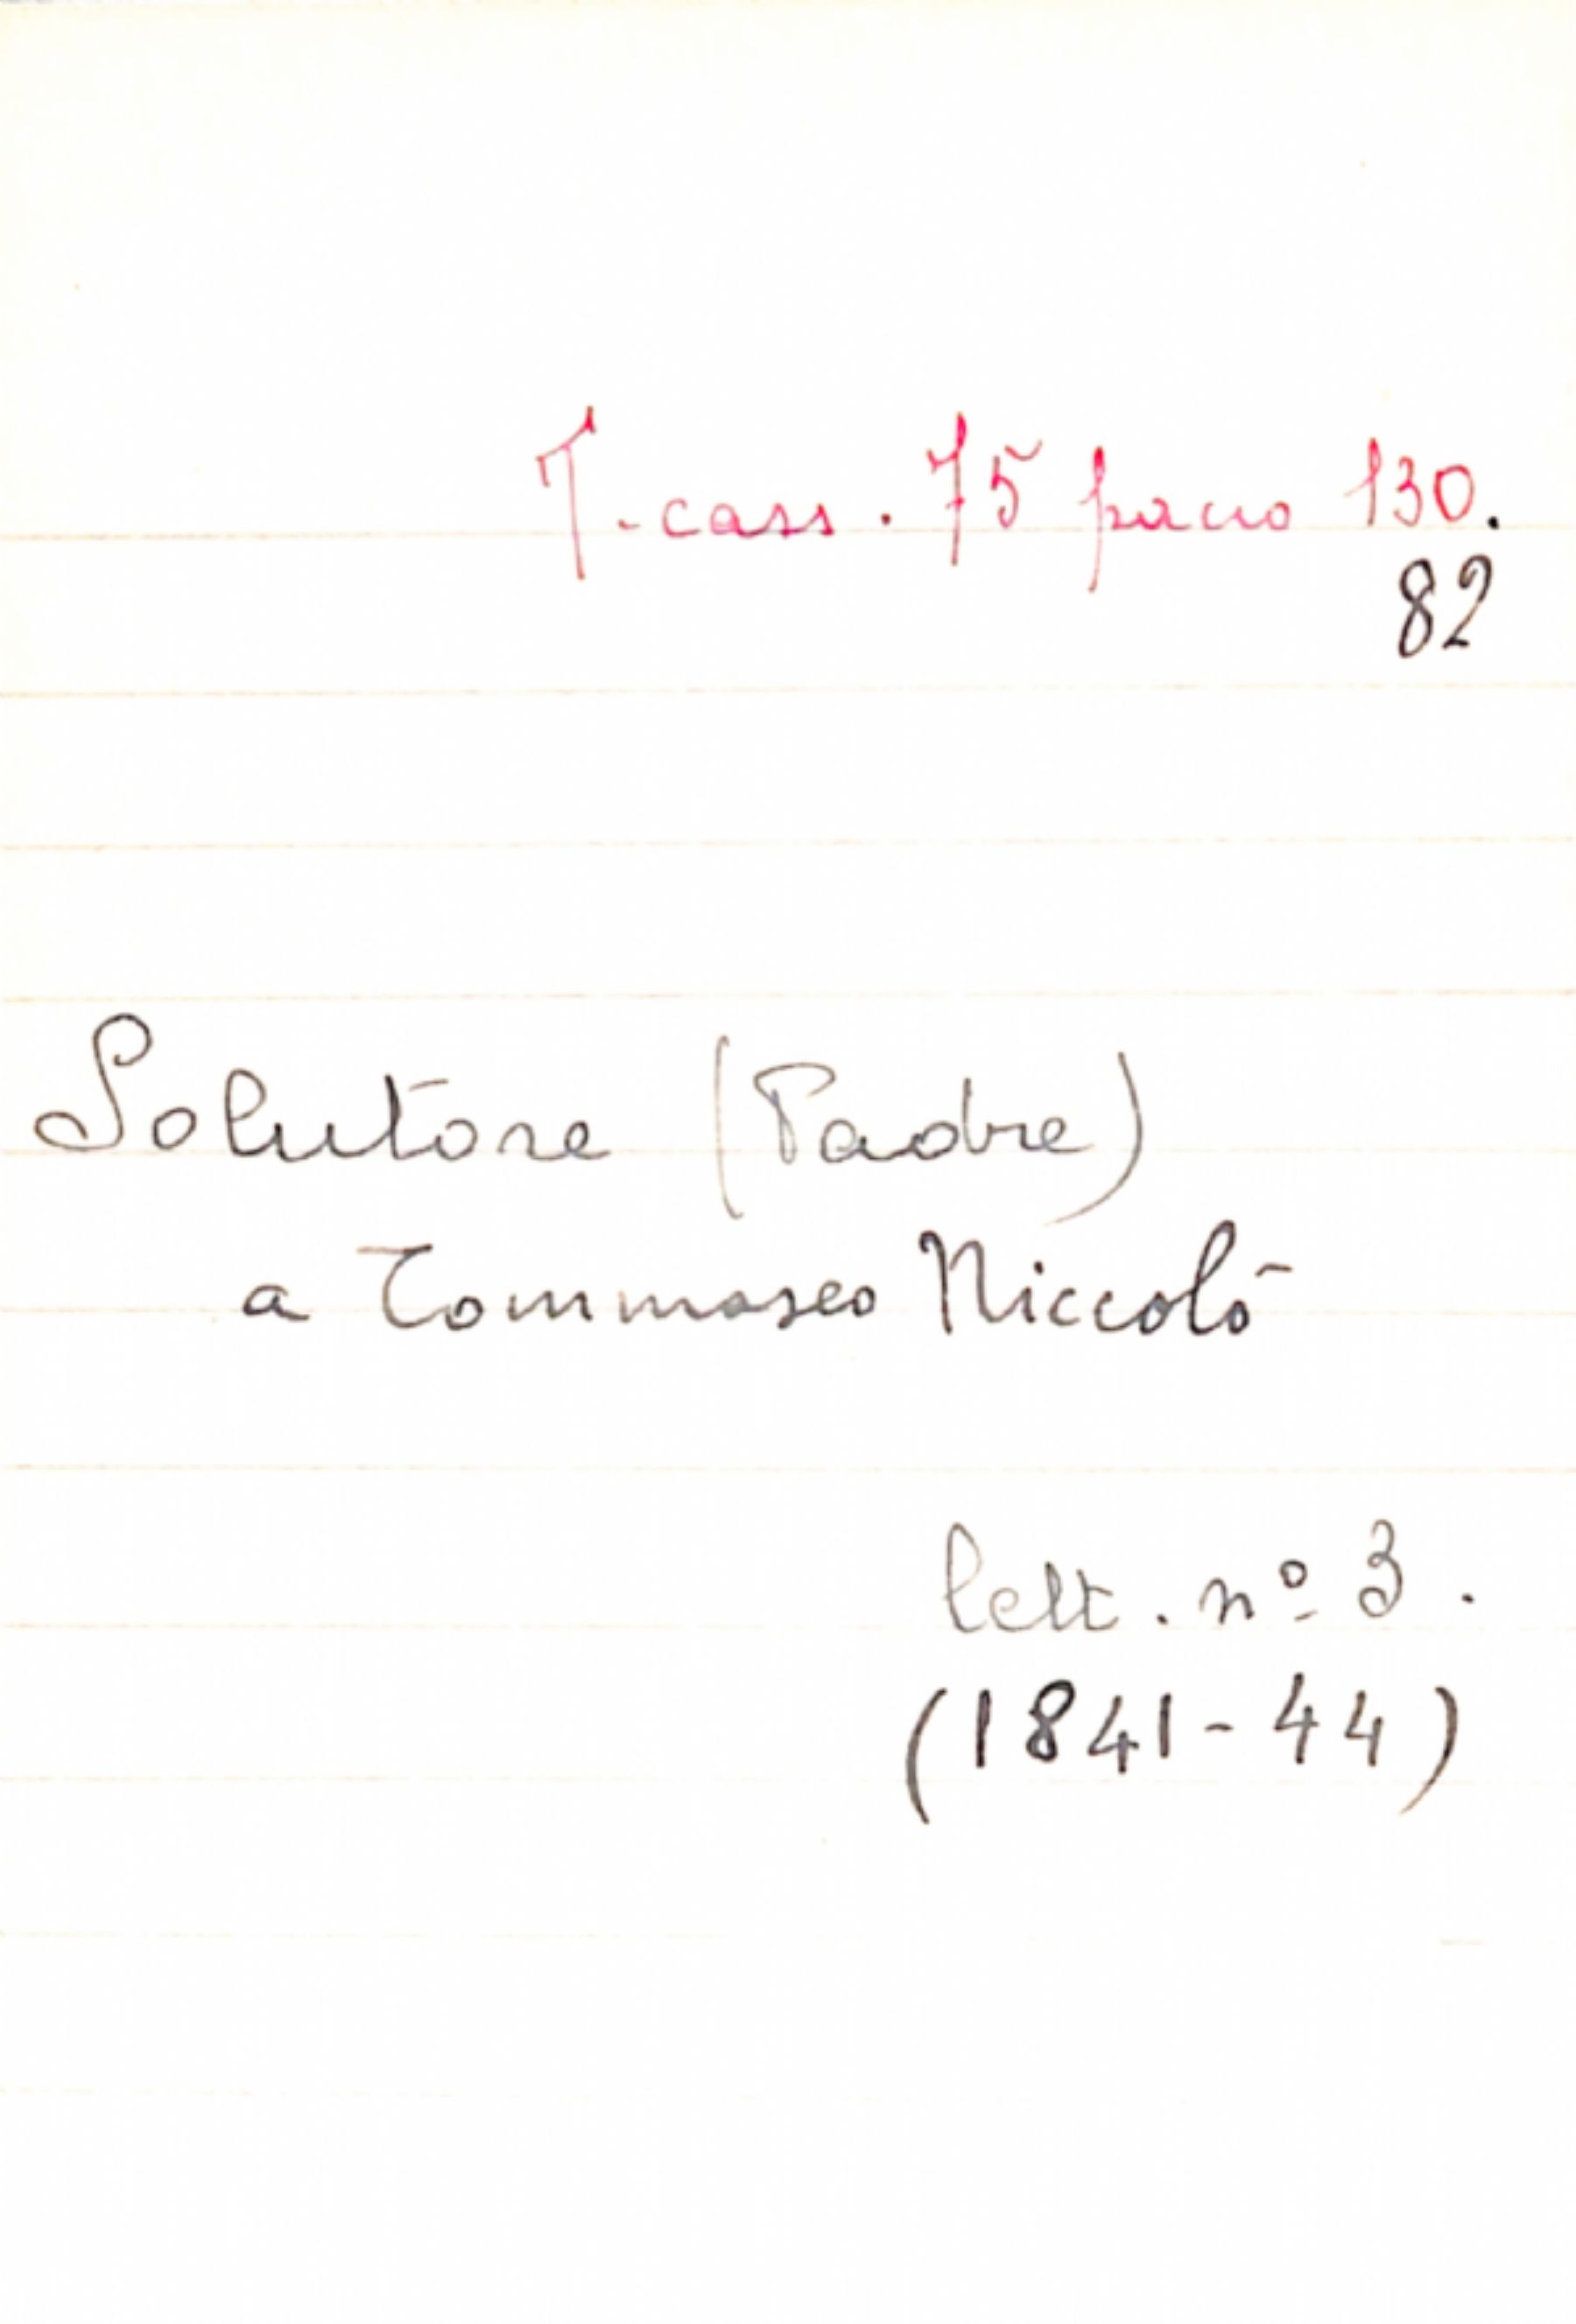 T. cass. 75 pacco 130.
82
Solutore (Padre)
a Tommaseo Niccolò
lett. nº 3.
(1841-44)